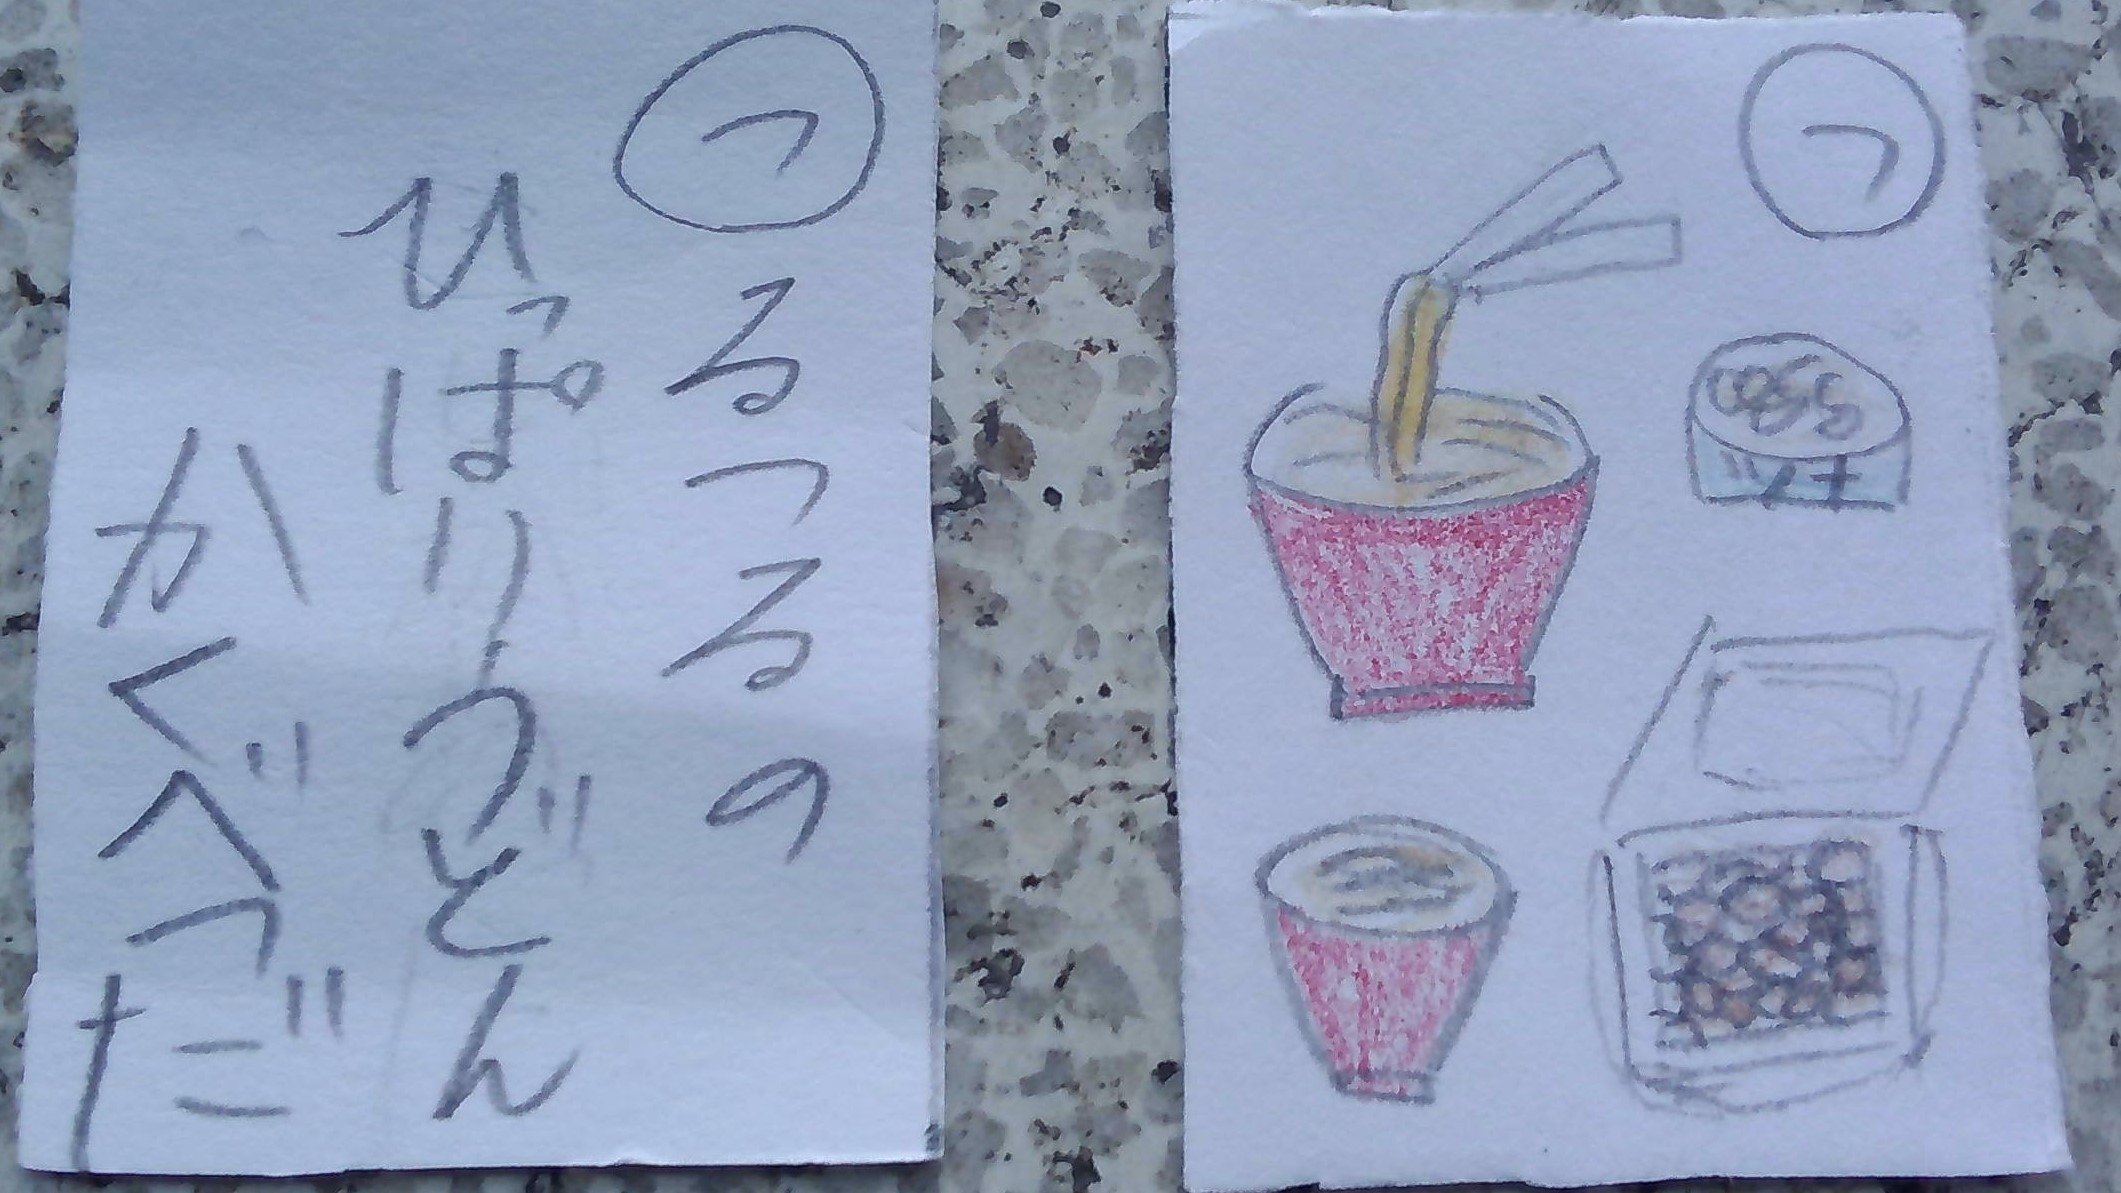 つるつるの
ひっぱりうどん
かくべつだ
つ
ツナ